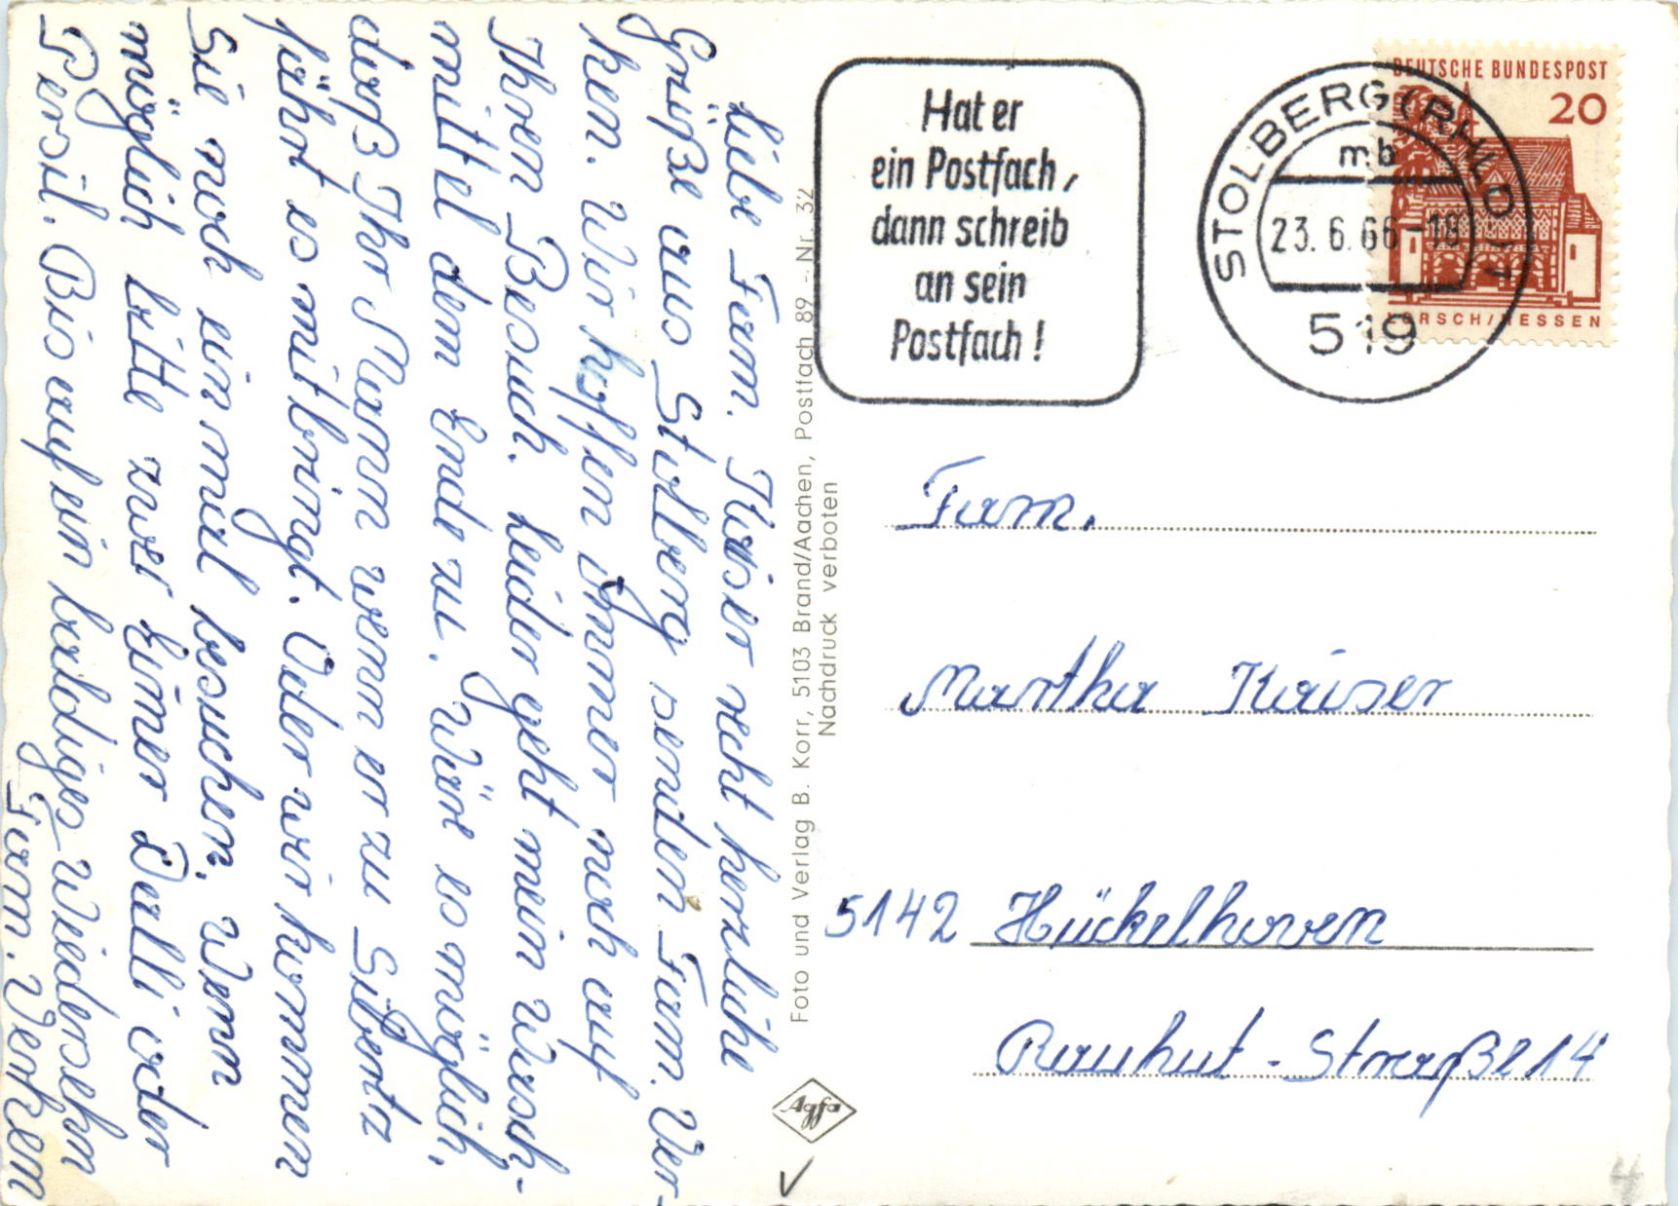 Liebe Fam. Kaiser recht herzliche
Grüße aus Stolberg senden Fam. Ver-
ken. Wir hoffen immer noch auf
Ihren Besuch. Leider geht mein Wasch-
mittel dem Ende zu. Wäre es möglich,
daß Ihr Mann wenn er zu Sibertz
fährt es mitbringt. Oder wir kommen
Sie noch einmal besuchen. Wenn
möglich bitte zwei Eimer Dalli oder
Persil. Bis auf ein baldiges Wiedersehn
Fam. Verken
Foto und Verlag B. Korr, 5103 Brand/Aachen, Postfach 89 - Nr. 32
Nachdruck verboten
Agfa
Hat er
ein Postfach,
dann schreib
an sein
Postfach!
STOLBERG (RHLD)
mb
23.6.66-18
519
DEUTSCHE BUNDESPOST
20
LORSCH/HESSEN
Fam.
Martha Kaiser
5142 Hückelhoven
Rauhut-Straße 14
4